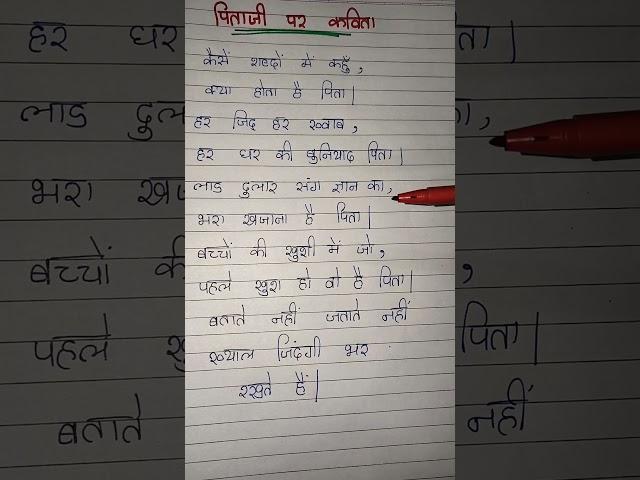 पिताजी पर कविता
कैसे शब्दों में कहूँ,
क्या होता है पिता|
हर जिद हर ख्वाब,
हर घर की बुनियाद पिता|
लाड दुलार संग ज्ञान का,
भरा खजाना है पिता|
बच्चों की खुशी में जो,
पहले खुश हो वो है पिता|
बताते नहीं जताते नहीं
ख्याल जिंदगी भर
रखते हैं|